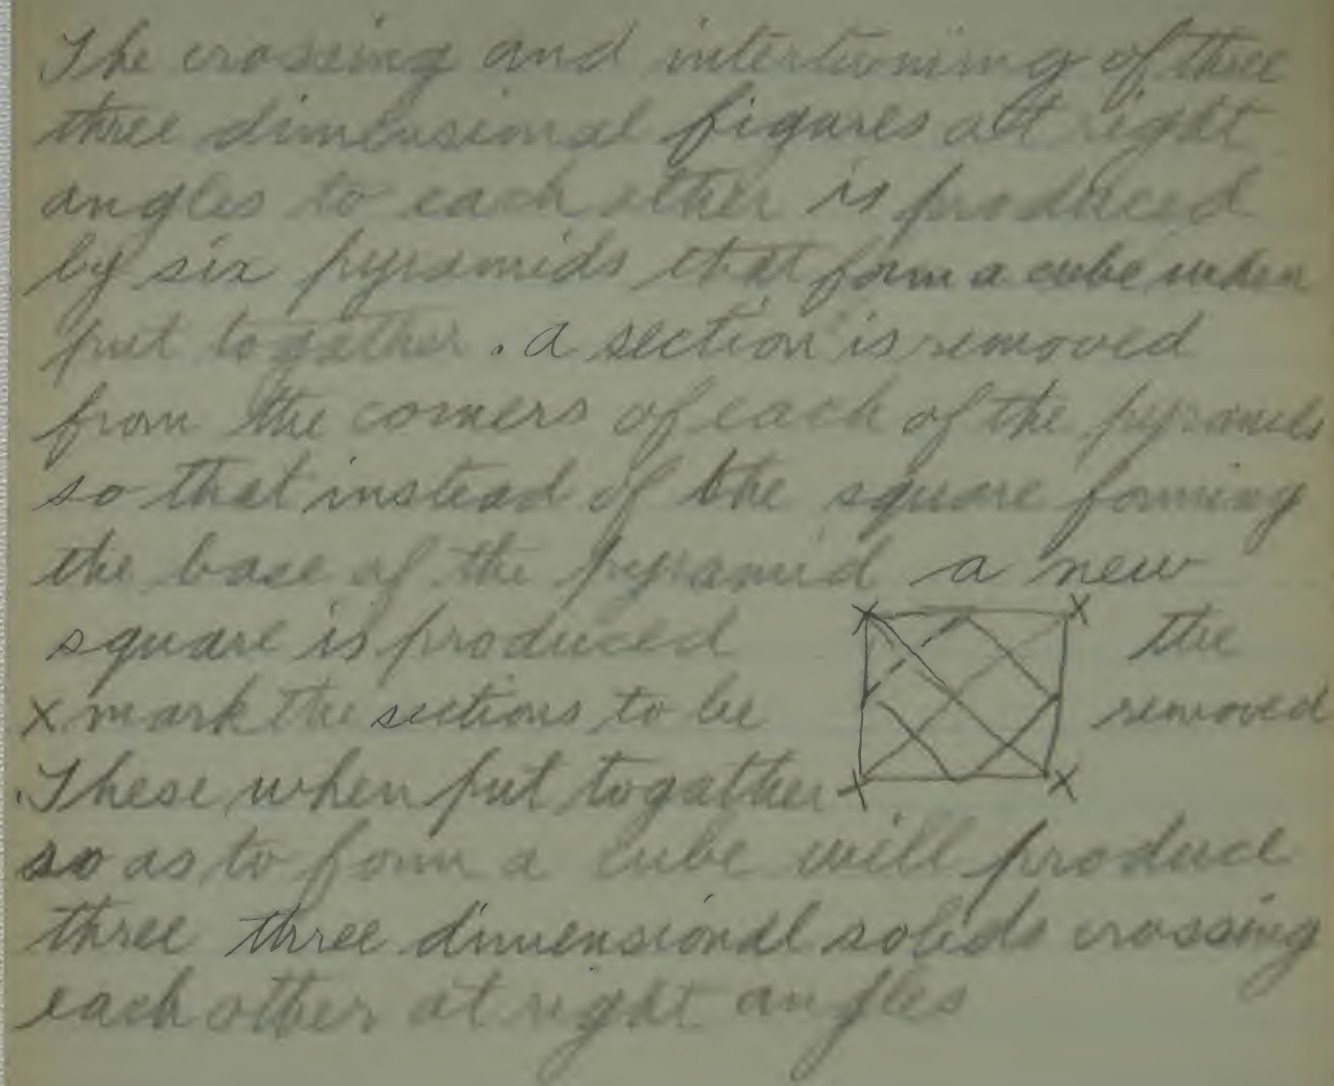 The crossing and intertwining of three
three dimensional figures att right
angles to each other is produced
by six pyramids that form a cube when
put togather. A section is removed
from the corners of each of the pyramids
so that instead of the square forming
the base of the pyramid a new
square is produced the
x mark the sections to be removed
These when put togather
so as to form a cube will produce
three three dimensional solids crossing
each other at right angles